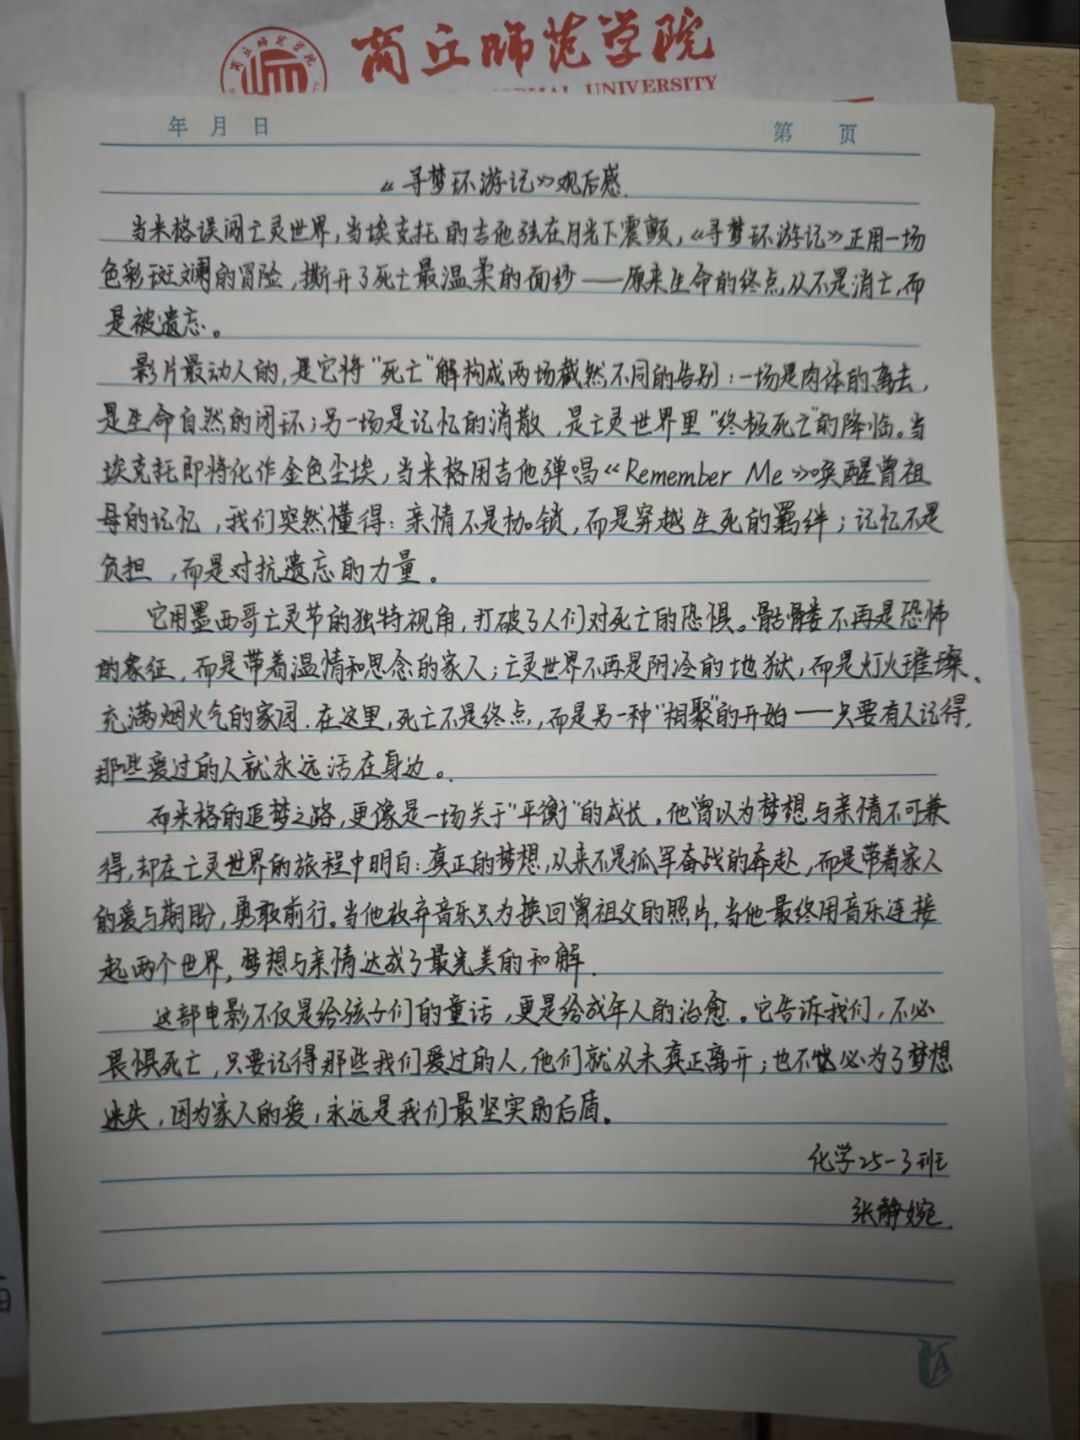 商丘师范学院
NORMAL UNIVERSITY
年 月 日
第 页
《寻梦环游记》观后感.
当米格误闯亡灵世界,当埃克托的吉他弦在月光下震颤,《寻梦环游记》正用一场
色彩斑斓的冒险,撕开了死亡最温柔的面纱——原来生命的终点,从不是消亡,而
是被遗忘。
影片最动人的,是它将"死亡"解构成两场截然不同的告别:一场是肉体的离去,
是生命自然的闭环;另一场是记忆的消散,是亡灵世界里"终极死亡"的降临。当
埃克托即将化作金色尘埃,当米格用吉他弹唱《Remember Me》唤醒曾祖
母的记忆,我们突然懂得:亲情不是枷锁,而是穿越生死的羁绊;记忆不是
负担,而是对抗遗忘的力量。
它用墨西哥亡灵节的独特视角,打破了人们对死亡的恐惧。骷髅不再是恐怖
的象征,而是带着温情和思念的家人;亡灵世界不再是阴冷的地狱,而是灯火璀璨、
充满烟火气的家园.在这里,死亡不是终点,而是另一种"相聚"的开始——只要有人记得,
那些爱过的人就永远活在身边。
而米格的追梦之路,更像是一场关于"平衡"的成长。他曾以为梦想与亲情不可兼
得,却在亡灵世界的旅程中明白:真正的梦想,从来不是孤军奋战的奔赴,而是带着家人
的爱与期盼,勇敢前行。当他放弃音乐只为换回曾祖父的照片,当他最终用音乐连接
起两个世界,梦想与亲情达成了最完美的和解.
这部电影不仅是给孩子们的童话,更是给成年人的治愈。它告诉我们,不必
畏惧死亡,只要记得那些我们爱过的人,他们就从未真正离开;也不必为了梦想
迷失,因为家人的爱,永远是我们最坚实的后盾。
化学25-3班
张静婉.